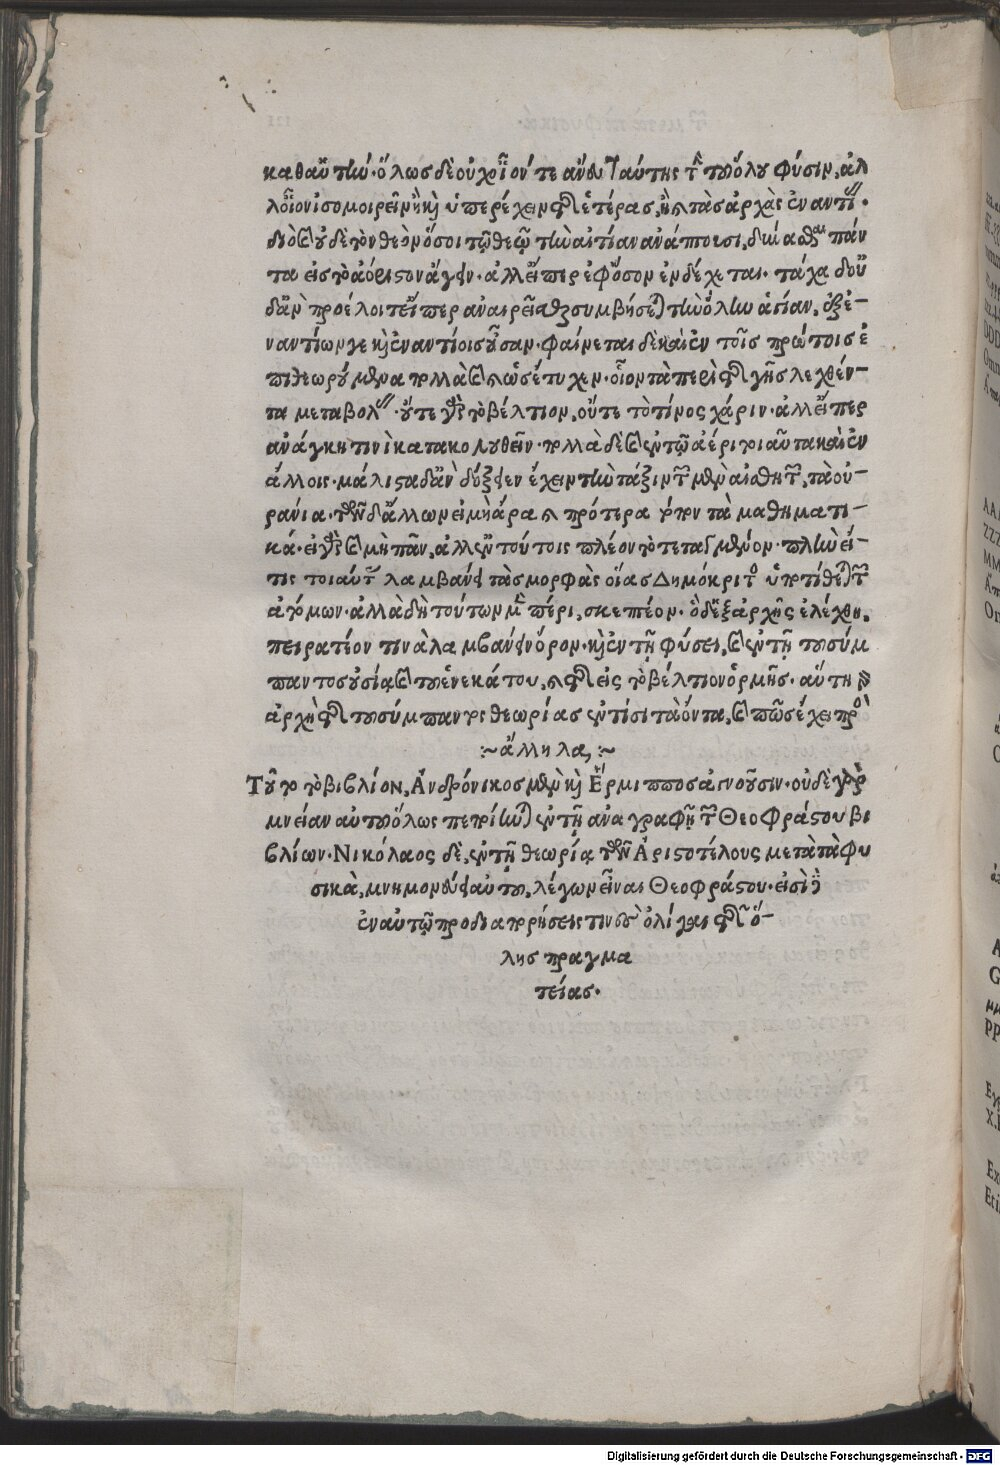 καθ' αὑτήν· ὅλως δὲ οὐχ οἷόν τε ἄνευ ταύτης τὴν τοῦ ὅλου φύσιν, ἀλ
λ' οἷον ἰσομοιρεῖν ἢ καὶ ὑπερέχειν τῆς ἑτέρας, ἢ καὶ τὰς ἀρχὰς ἐναντίας·
διὸ καὶ οὐδὲ τὸν θεὸν ὅσοι τῷ θεῷ τὴν αἰτίαν ἀνάπτουσι, δύνασθαι πάν
τα εἰς τὸ ἄριστον ἄγειν· ἀλλ' εἴπερ ἐφ' ὅσον ἐνδέχεται· τάχα δ' οὐ
δ' ἂν προέλοιτ' εἴπερ ἀναιρεῖσθαι συμβήσεται τὴν ὅλην οὐσίαν, ἐξ ἐ-
ναντίων γε καὶ ἐν ἐναντίοις οὖσαν· φαίνεται δὲ καὶ ἐν τοῖς πρώτοις ἐ
πιθεωρούμενα πολλὰ καὶ ὡς ἔτυχεν· οἷον τὰ περὶ τῆς γῆς λεχθέν-
τα μεταβολάς· οὔτε γὰρ τὸ βέλτιον, οὔτε τὸ τίνος χάριν· ἀλλ' εἴπερ
ἀνάγκῃ τινὶ κατακολουθεῖν· πολλὰ δὲ καὶ ἐν τῷ ἀέρι τοιαῦτα καὶ ἐν
ἄλλοις· μάλιστα δ' ἂν δόξειεν ἔχειν τὴν τάξιν τῶν μὲν αἰσθητῶν, τὰ οὐ-
ράνια· τῶν δ' ἄλλων εἰ μὴ ἄρα καὶ πρότερα τούτων τὰ μαθηματι-
κά· εἰ γὰρ καὶ μὴ πᾶν, ἀλλ' ἐν τούτοις πλέον τὸ τεταγμένον· πλὴν εἴ-
τις τοιαύτας λαμβάνει τὰς μορφὰς οἵας Δημόκριτος ὑποτίθεται τῶν
ἀτόμων· ἀλλὰ δὴ τούτων μὲν πέρι, σκεπτέον· ὃ δ' ἐξ ἀρχῆς ἐλέχθη,
πειρατέον τινὰ λαμβάνειν ὅρον· καὶ ἐν τῇ φύσει, καὶ ἐν τῇ τοῦ σύμ
παντος οὐσίᾳ καὶ τοῦ ἕνεκά του, καὶ τῆς εἰς τὸ βέλτιον ὁρμῆς· αὕτη γὰρ
ἀρχὴ τῆς τοῦ σύμπαντος θεωρίας ἐν τίσι τὰ ὄντα, καὶ πῶς ἔχει πρὸς
:~ ἄλληλα, :~
Τοῦτο τὸ βιβλίον, Ἀνδρόνικος μὲν καὶ Ἕρμιππος ἀγνοοῦσιν· οὐδὲ γὰρ
μνείαν αὐτοῦ ὅλως πεποίηνται ἐν τῇ ἀναγραφῇ τῶν Θεοφράστου βι
βλίων· Νικόλαος δὲ, ἐν τῇ θεωρίᾳ τῶν Ἀριστοτέλους μετὰ τὰ φυ
σικὰ, μνημονεύει αὐτοῦ, λέγων εἶναι Θεοφράστου· εἰσὶ δ'
ἐν αὐτῷ προδιαπορήσεις τινὲς ὀλίγαι τῆς ὅ-
λης πραγμα
τείας.
Digitalisierung gefördert durch die Deutsche Forschungsgemeinschaft - DFG